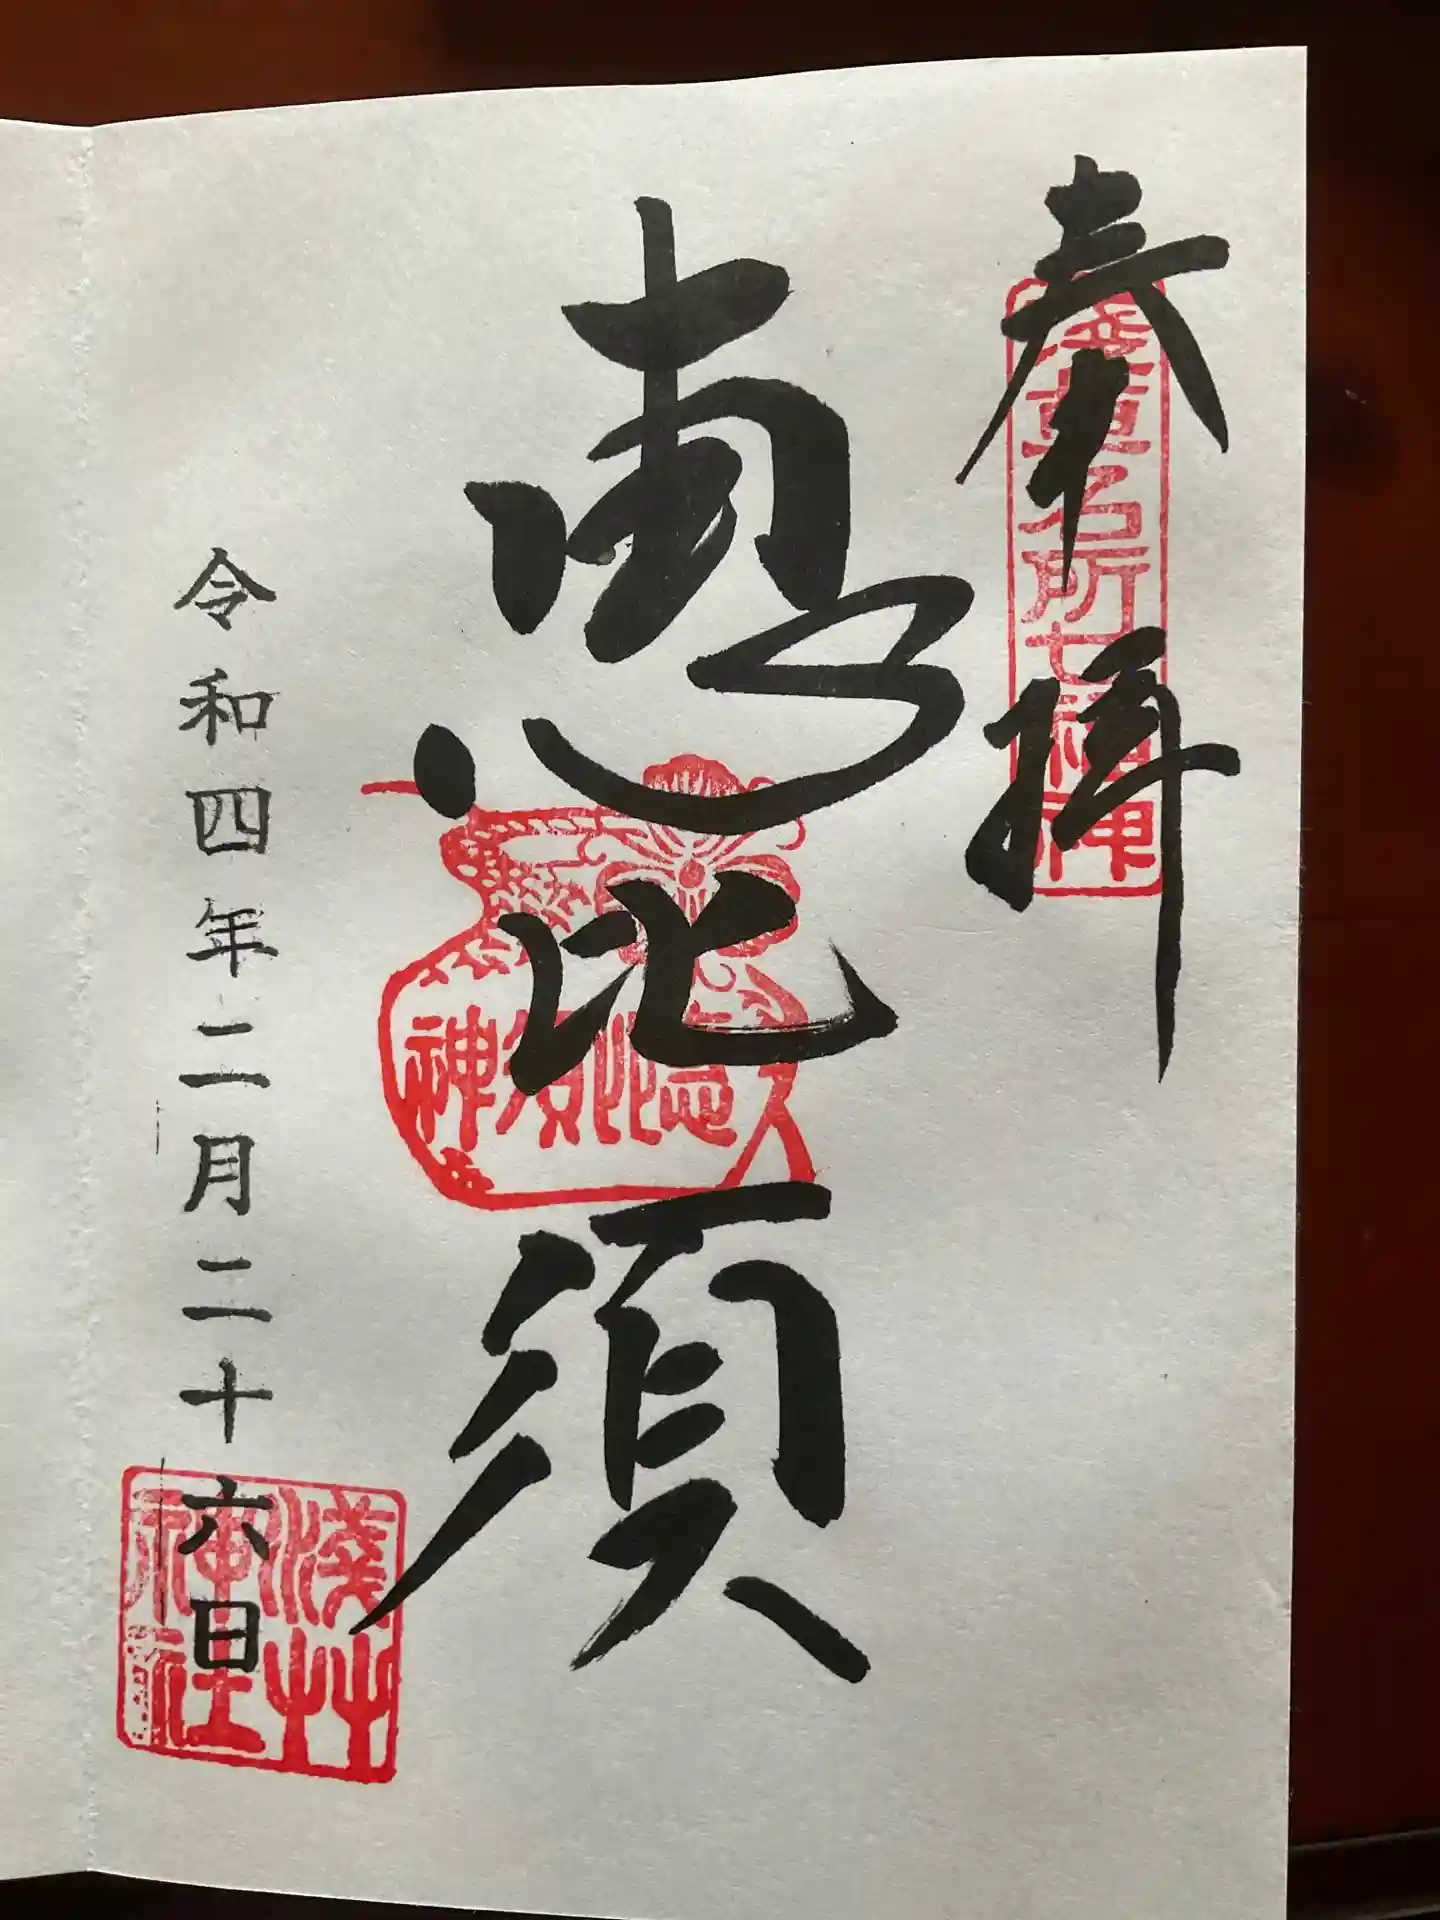 奉拝
浅草名所七福神
恵比須
恵比須神
令和四年二月二十六日
淺草神社